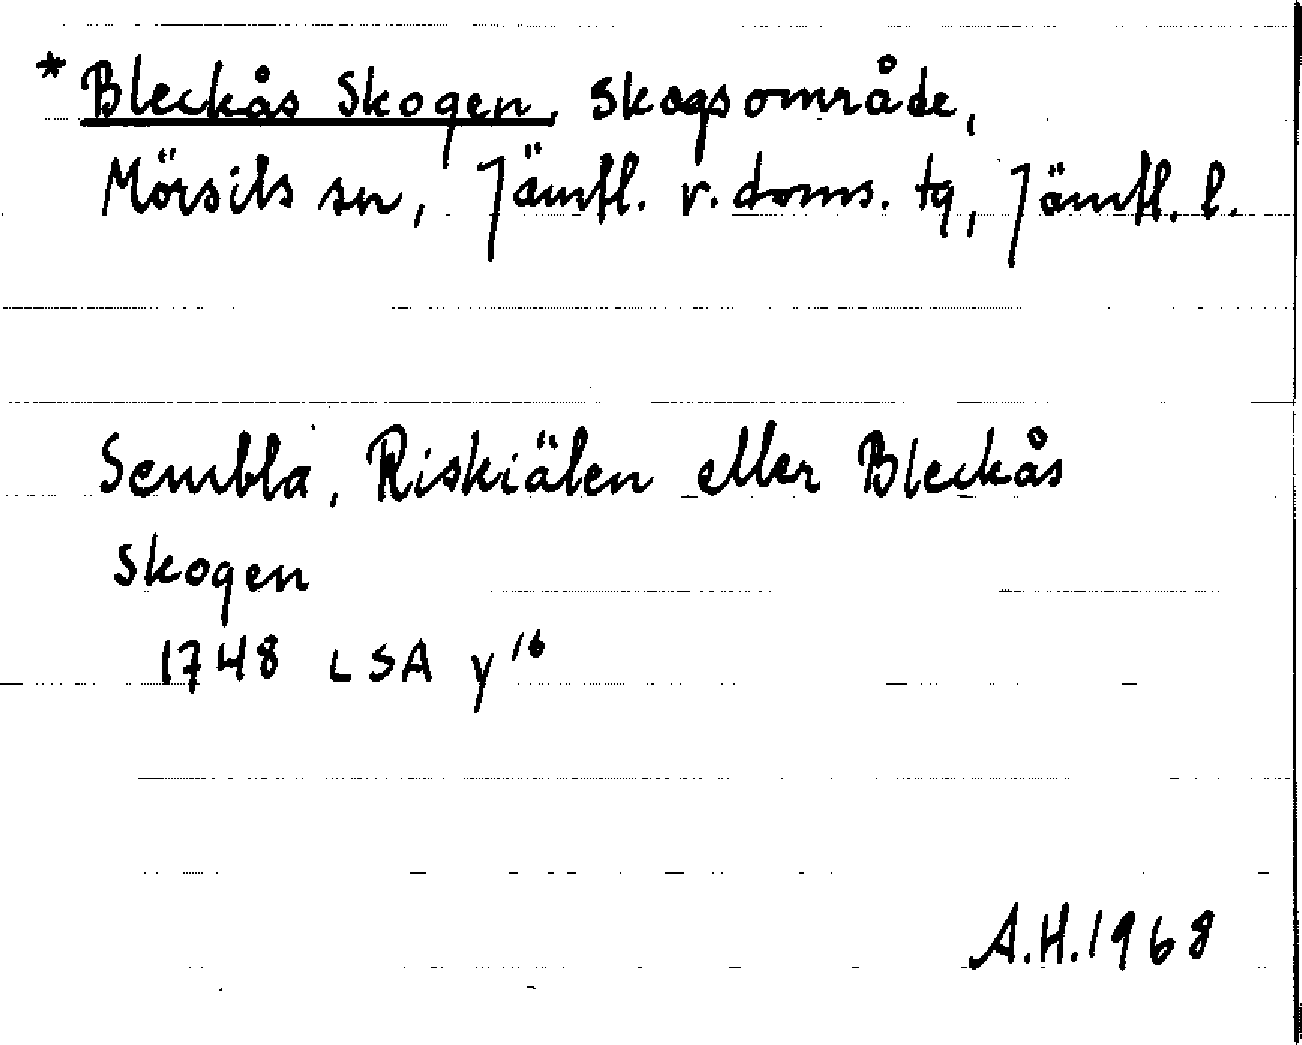 *Bleckås Skogen, Skogsområde,
Mörsils sn, Jämtl. v. doms. tg, Jämtl. l.
Sembla, Riskiälen eller Bleckås
Skogen
1748 LSA y¹⁶
A.H.1968